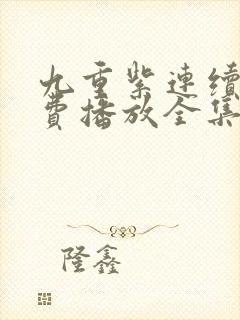 九重紫連續
費播放全集
隆鑫